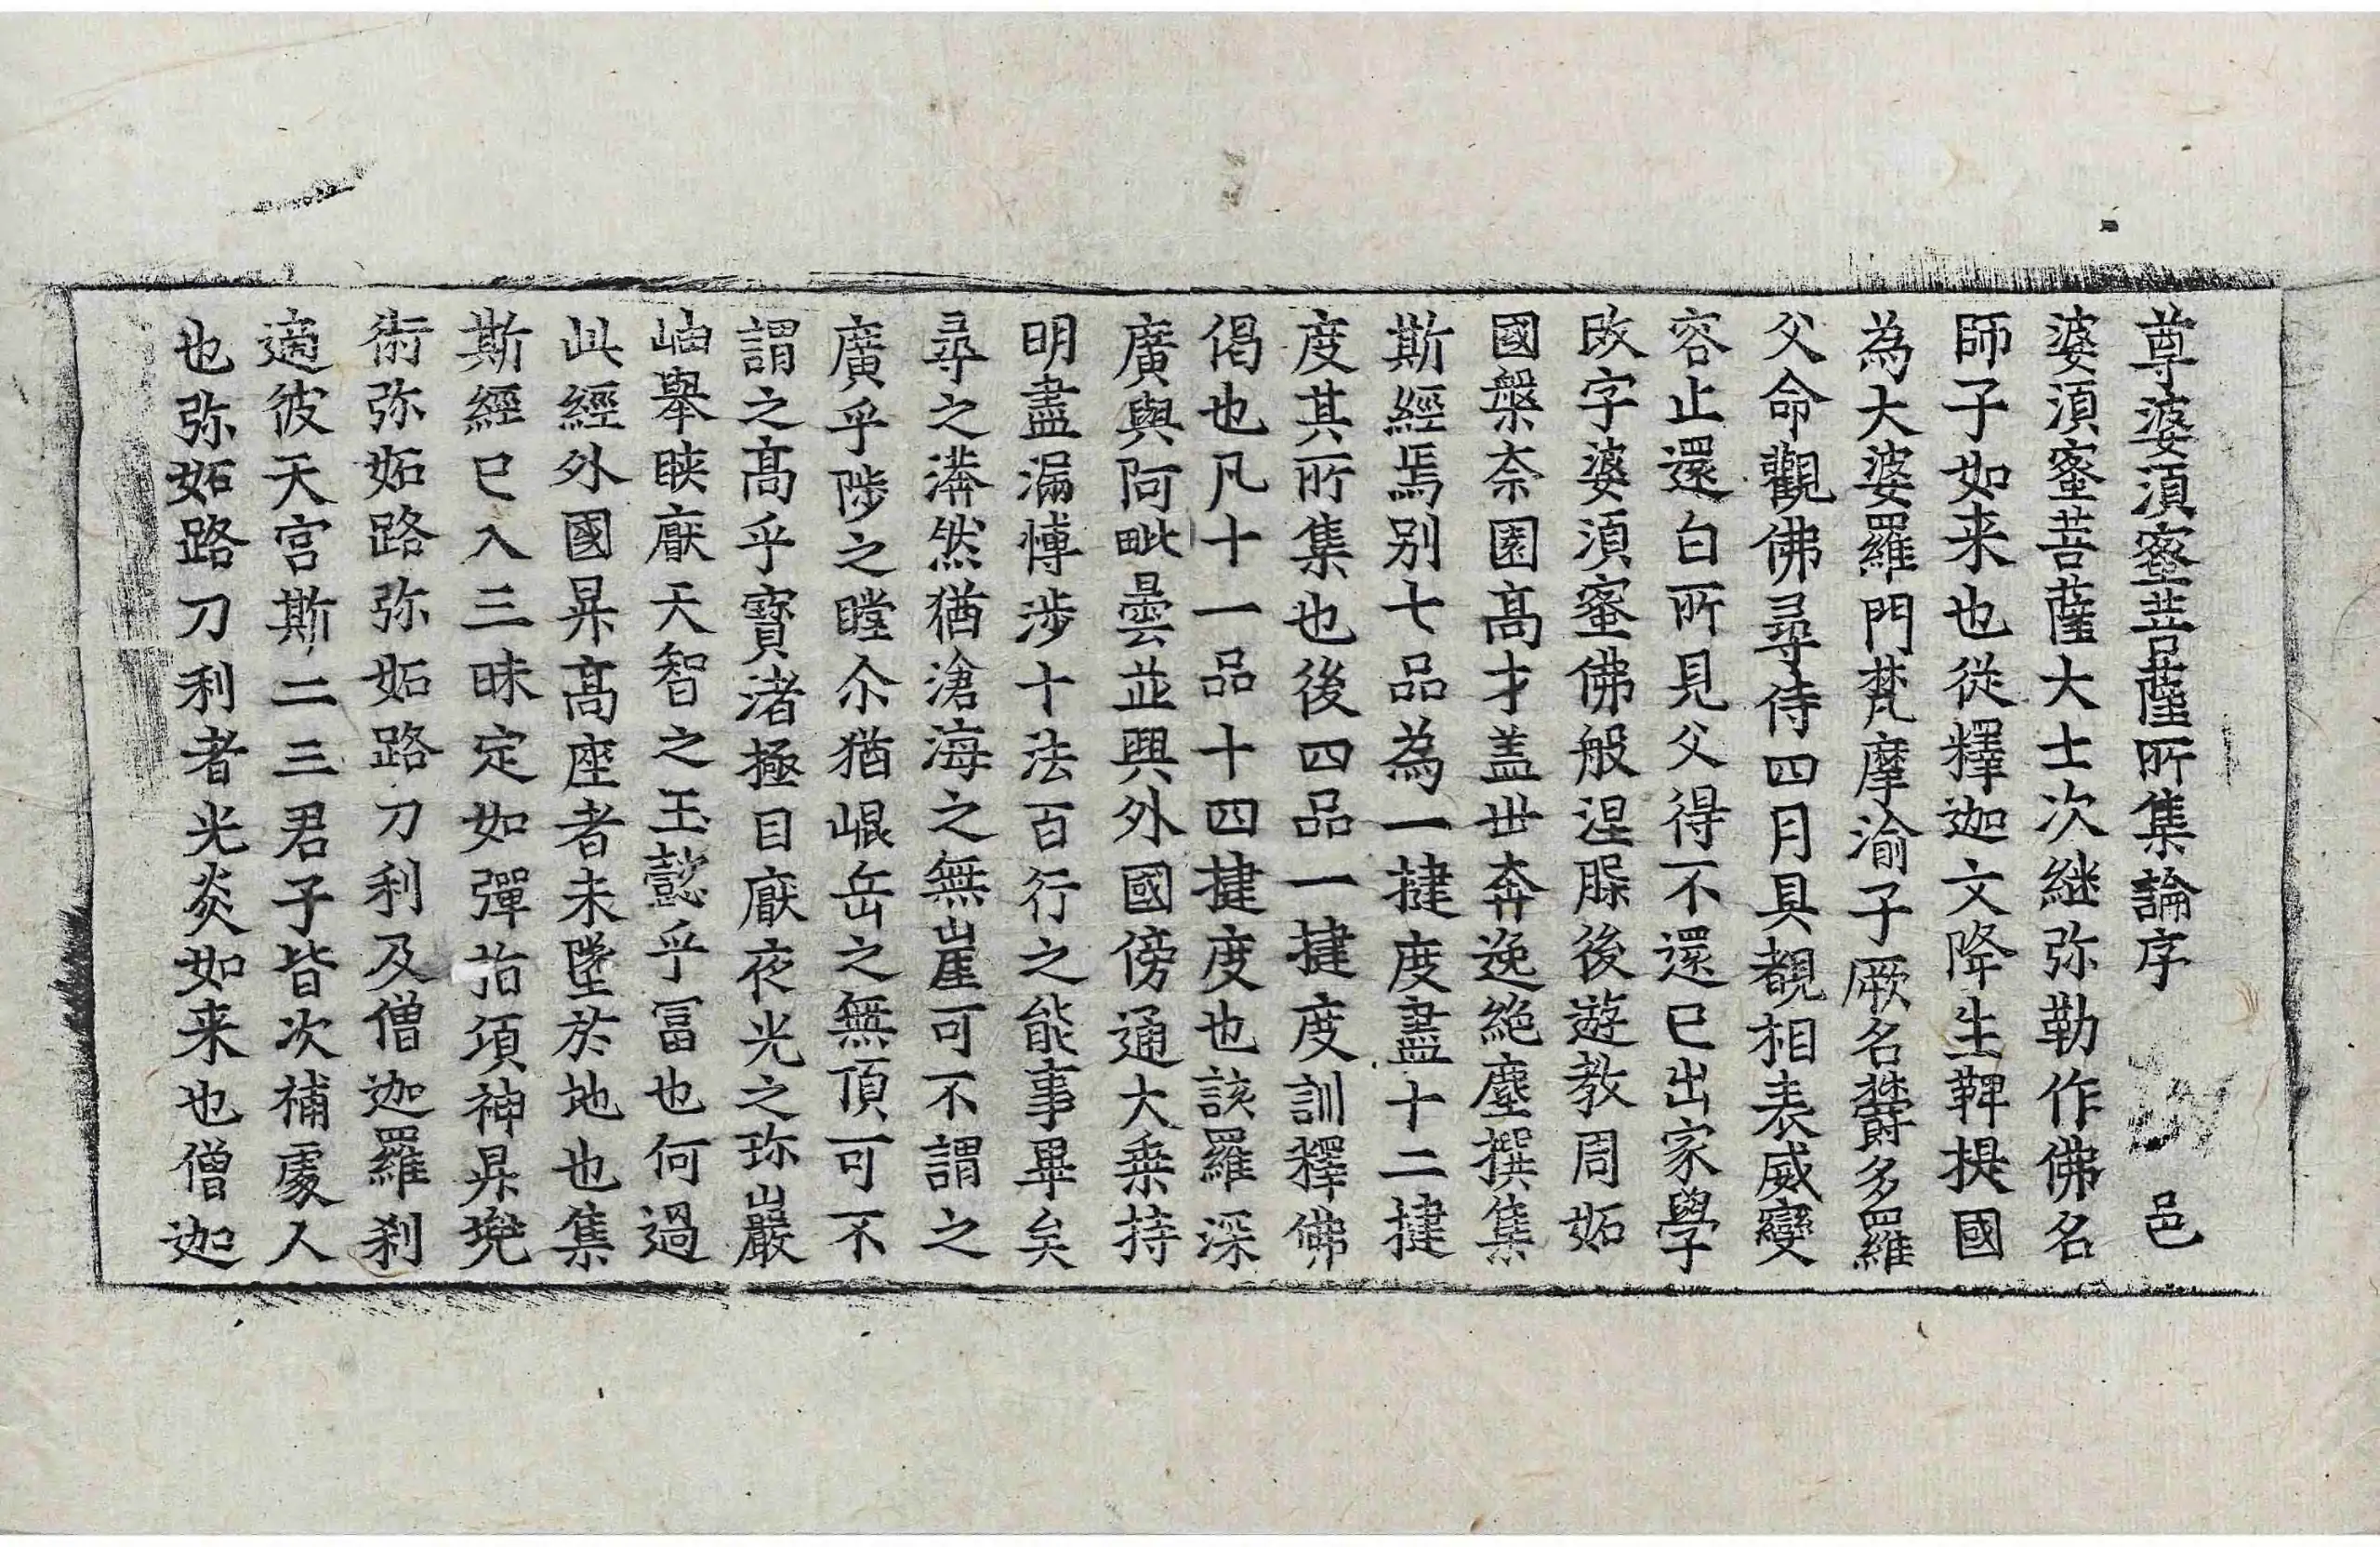 尊婆須蜜菩薩所集論序 邑
婆須蜜菩薩大士次継弥勒作佛名
師子如来也從釋迦文降生鞞提國
為大婆羅門梵摩渝子厥名欝多羅
父命觀佛尋侍四月具覩相表威變
容止還白所見父得不還已出家學
改字婆須蜜佛般涅槃後遊教周妬
國槃奈園髙才盖丗奔逸絶塵撰集
斯經焉别七品為一揵度盡十二揵
度其所集也後四品一揵度訓釋佛
偈也凡十一品十四揵度也該羅深
廣與阿毗曇並興外國傍通大乗持
明盡漏愽渉十法百行之能事畢矣
尋之漭然猶滄海之無崖可不謂之
廣乎陟之瞠尒猶崐岳之無頂可不
謂之髙乎寳渚極目猒夜光之珎巖
岫舉睫猒天智之玉懿乎冨也何過
此經外國昇髙座者未墜於地也集
斯經已入三昧定如彈指項神昇兠
術弥妬路弥妬路刀利及僧迦羅刹
適彼天宫斯二三君子皆次補處人
也弥妬路刀利者光炎如来也僧迦